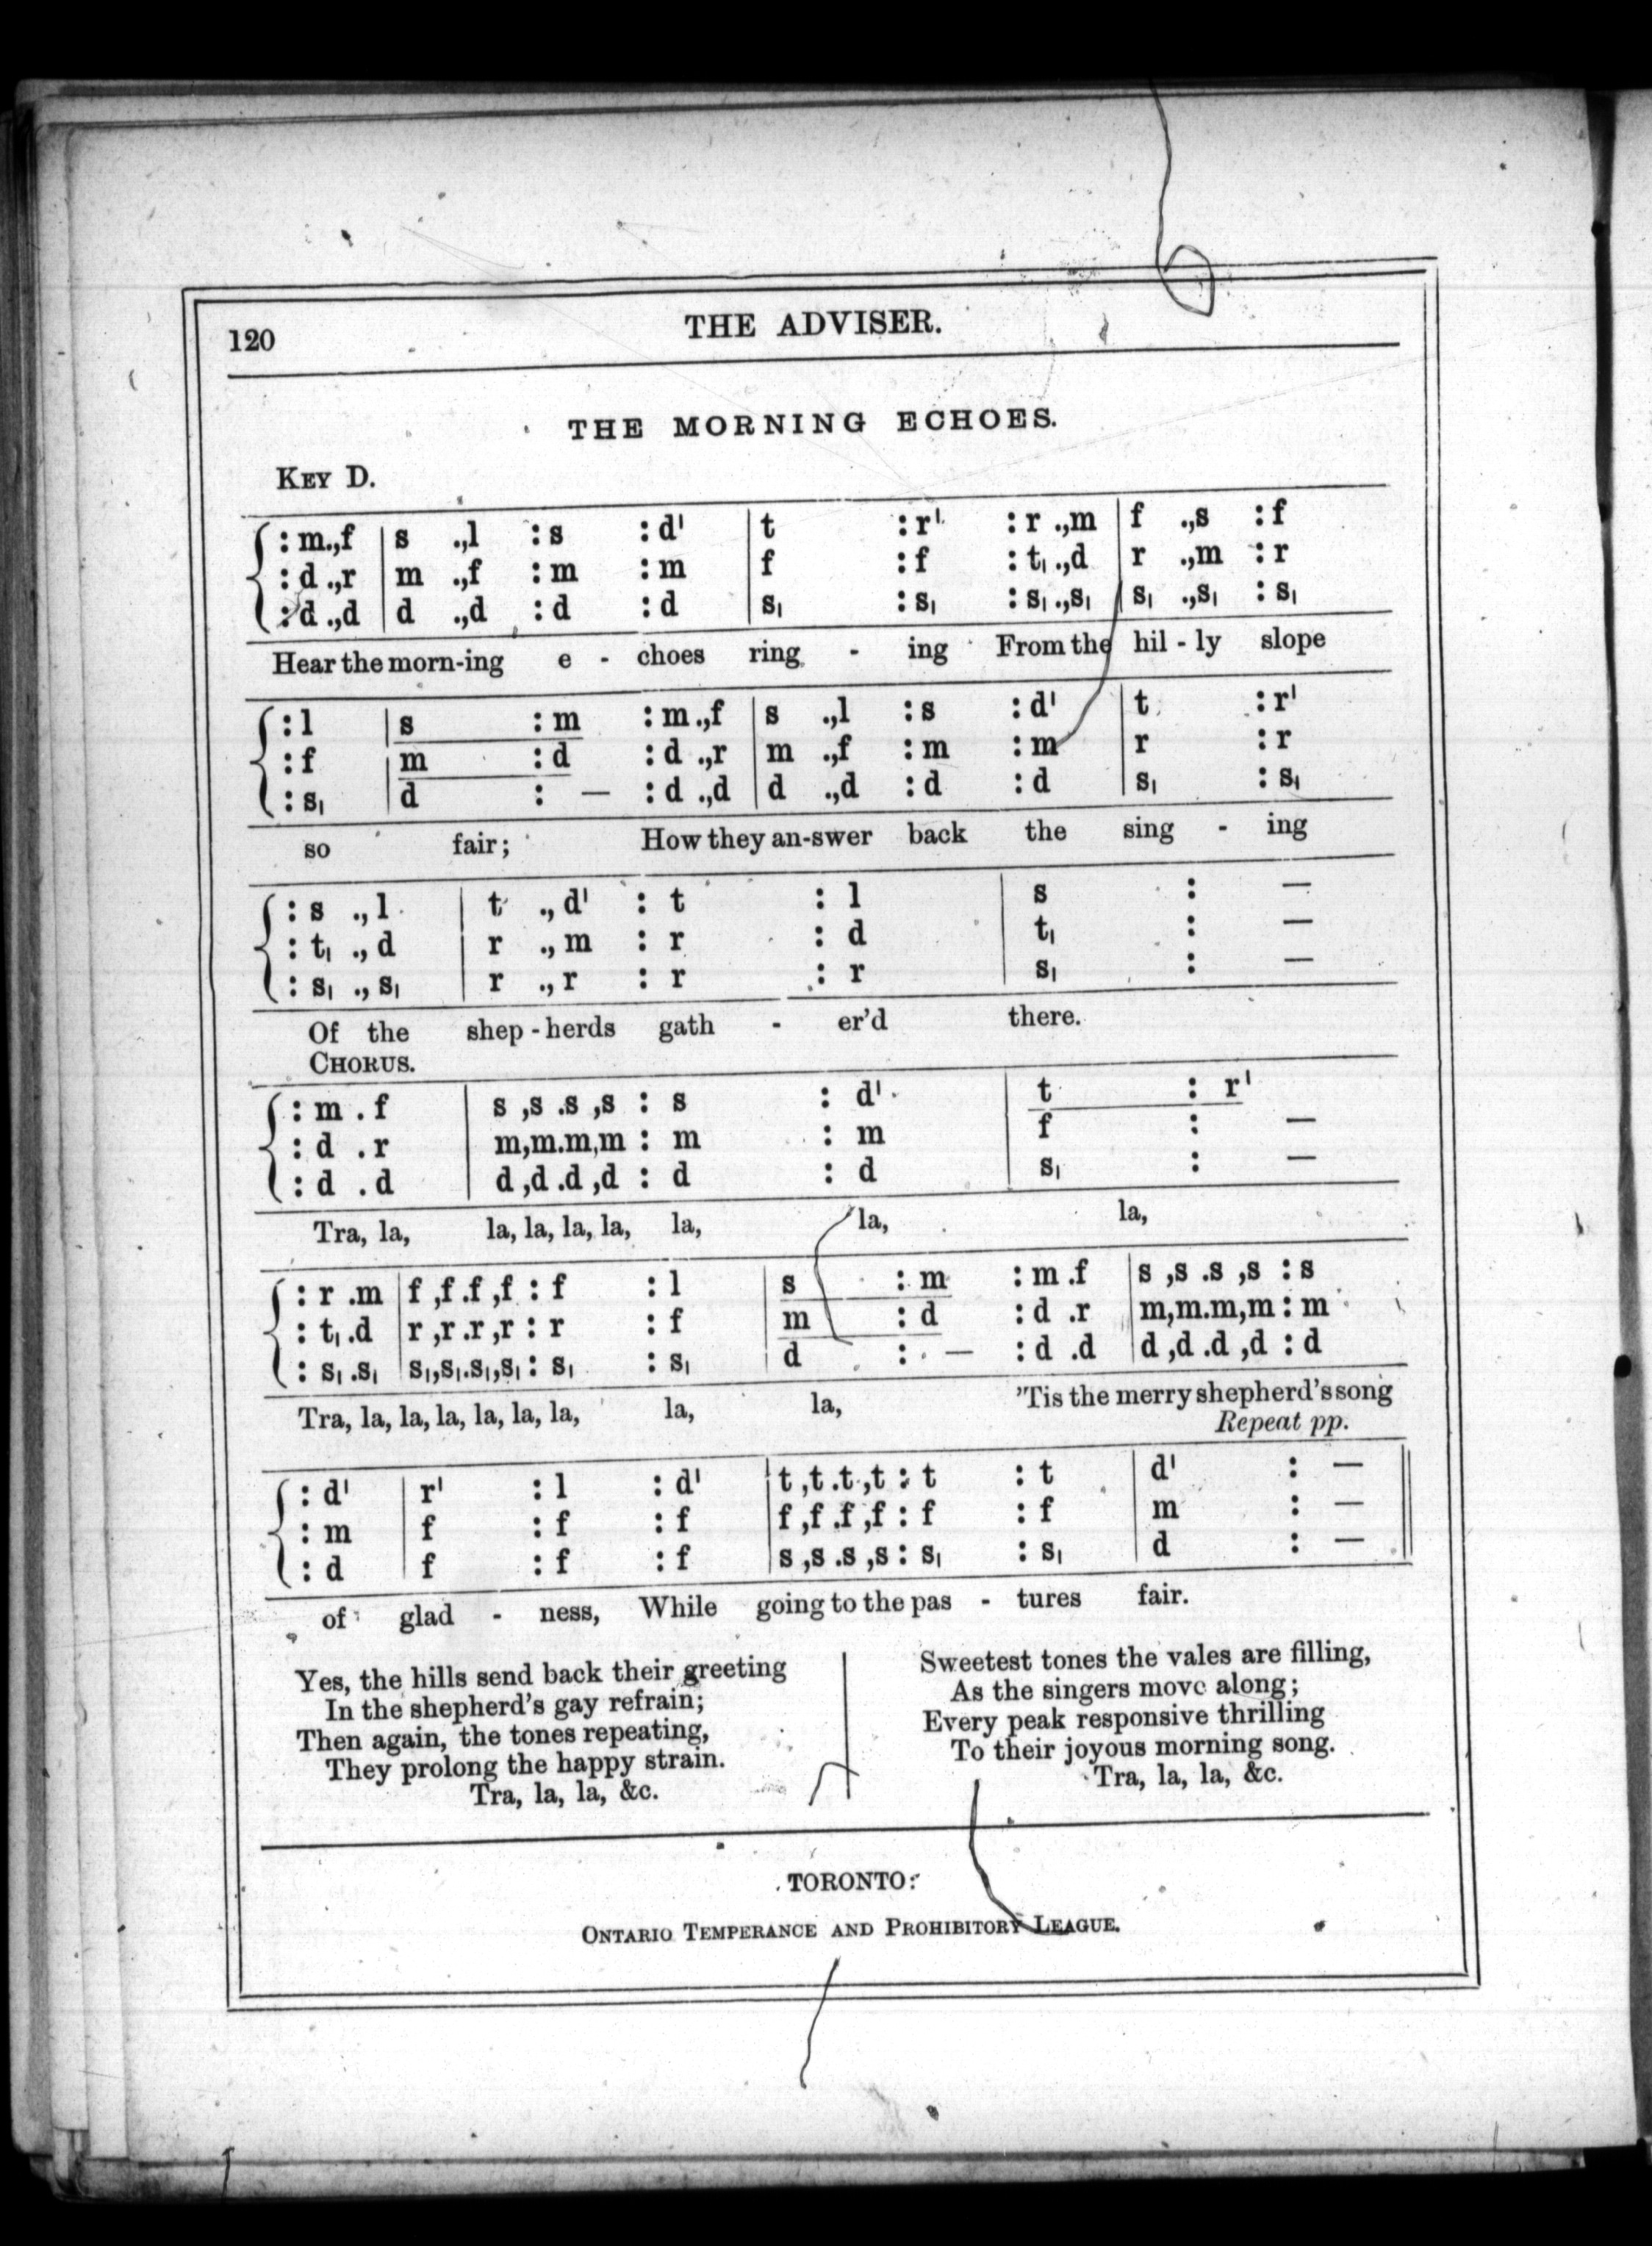 120
THE ADVISER.
THE MORNING ECHOES.
KEY D.
:m.,f | s .,l :s :d' | t :r' :r .,m | f .,s :f
:d .,r | m .,f :m :m | f :f :t₁ .,d | r .,m :r
:d .,d | d .,d :d :d | s₁ :s₁ :s₁ .,s₁ | s₁ .,s₁ :s₁
Hear the morn-ing e - choes ring - ing From the hil - ly slope
:l | s :m :m .,f | s .,l :s :d' | t :r'
:f | m :d :d .,r | m .,f :m :m | r :r
:s₁ | d : — :d .,d | d .,d :d :d | s₁ :s₁
so fair; How they an-swer back the sing - ing
:s .,l | t .,d' :t :l | s : —
:t₁ .,d | r .,m :r :d | t₁ : —
:s₁ .,s₁ | r .,r :r :r | s₁ : —
Of the shep - herds gath - er'd there.
CHORUS.
:m .f | s ,s .s ,s :s :d' | t :r'
:d .r | m,m.m,m :m :m | f : —
:d .d | d ,d .d ,d :d :d | s₁ : —
Tra, la, la, la, la, la, la, la, la,
:r .m | f ,f .f ,f :f :l | s :m :m .f | s ,s .s ,s :s
:t₁ .d | r ,r .r ,r :r :f | m :d :d .r | m,m.m,m :m
:s₁ .s₁ | s₁,s₁.s₁,s₁ :s₁ :s₁ | d : — :d .d | d ,d .d ,d :d
Tra, la, la, la, la, la, la, la, la, 'Tis the merry shepherd's song
Repeat pp.
:d' | r' :l :d' | t ,t .t ,t :t :t | d' : —
:m | f :f :f | f ,f .f ,f :f :f | m : —
:d | f :f :f | s ,s .s ,s :s₁ :s₁ | d : —
of glad - ness, While going to the pas - tures fair.
Yes, the hills send back their greeting
In the shepherd's gay refrain;
Then again, the tones repeating,
They prolong the happy strain.
Tra, la, la, &c.
Sweetest tones the vales are filling,
As the singers move along;
Every peak responsive thrilling
To their joyous morning song.
Tra, la, la, &c.
TORONTO:
ONTARIO TEMPERANCE AND PROHIBITORY LEAGUE.